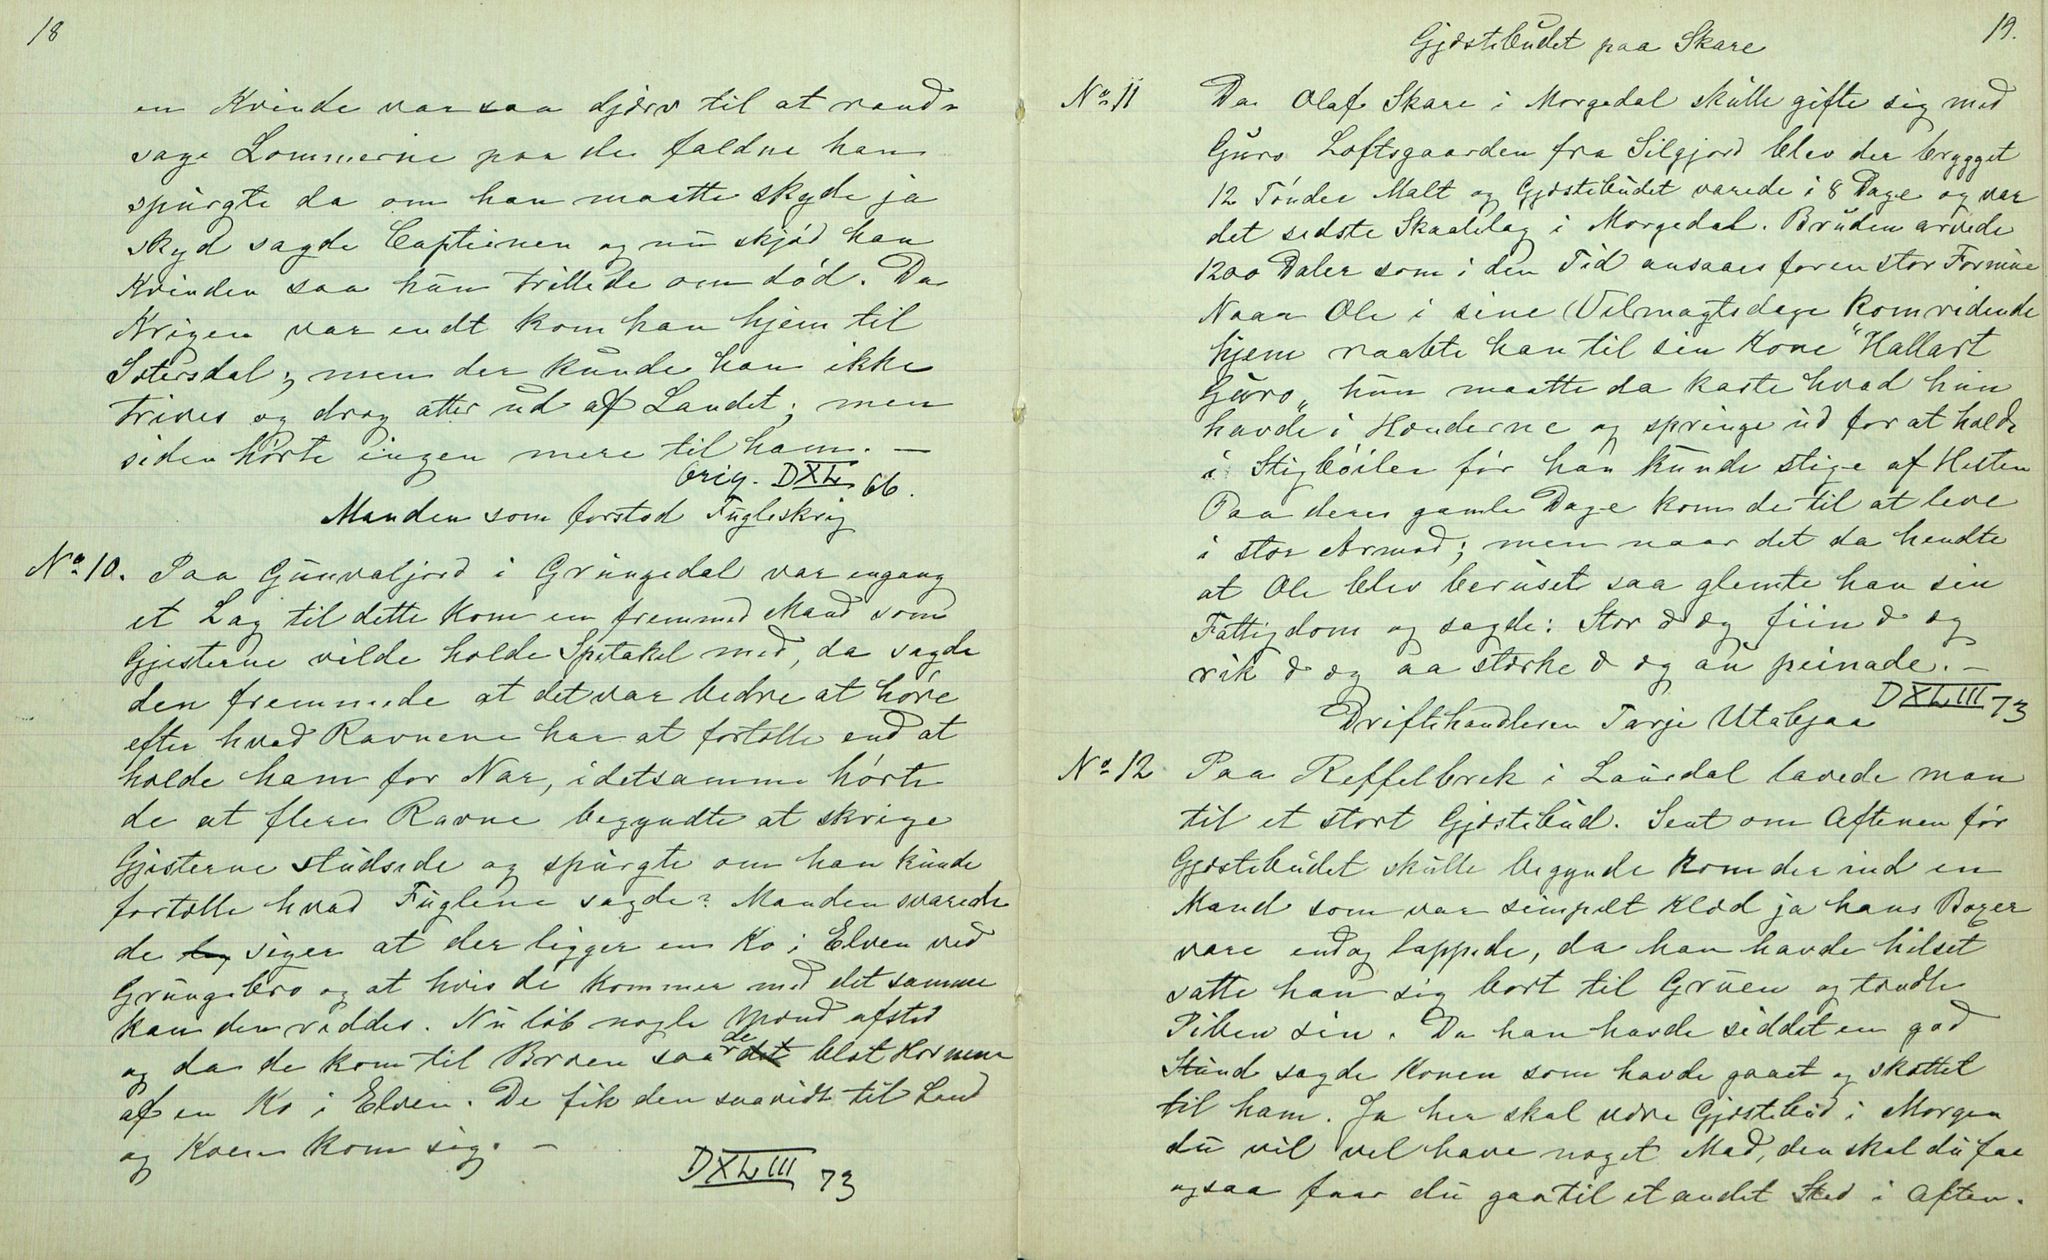 18
en Kvinde var saa djærv til at rand-
sage Lommerne paa de faldne han
spurgte da om han maatte skyde ja
skyd sagde Captienen og nu skjød han
Kvinden saa hun trillede om død. Da
Krigen var endt kom han hjem til
Sætersdal; men der kunde han ikke
trives og drog atter ud af Landet; men
siden hørte ingen mere til ham. —
orig. DXL 66.
Manden som forstod Fugleskrig
No 10. Paa Gunvaljord i Grungedal var engang
et Lag til dette kom en fremmed Mand som
Gjesterne vilde holde Spetakel med, da sagde
den fremmede at det var bedre at høre
efter hvad Ravnene har at fortælle end at
holde ham for Nar, i detsamme hørte
de at flere Ravne begyndte at skrige
Gjesterne studsede og spurgte om han kunde
fortælle hvad Fuglene sagde? Manden svarede
de siger at der ligger en Ko i Elven ved
Grungebro og at hvis de kommer med det samme
kan den reddes. Nu løb nogle Mænd afsted
og da de kom til Broen saa de det blot Hornene
af en Ko i Elven. De fik den saavidt til Land
og Koen kom sig. —
DXLIII 73
19.
Gjæstebudet paa Skare
No 11 Da Olaf Skare i Morgedal skulle gifte sig med
Guro Loftsgaarden fra Silgjord blev der brygget
12 Tønder Malt og Gjæstebudet varede i 8 Dage og var
det sidste Skaalelag i Morgedal. Bruden arvede
1200 Daler som i den Tid ansaaes for en stor Formue
Naar Ole i sine Velmagtsdage kom ridende
hjem raabte han til sin Kone "Hallart
Guro" hun maatte da kaste hvad hun
havde i Hænderne og springe ud for at holde
i Stigbøilen før han kunde stige af Hesten
Paa deres gamle Dage kom de til at leve
i stor Armod; men naar det da hendte
at Ole blev beruset saa glemte han sin
Fattigdom og sagde: Stor æ æg fiin æ æg
rik æ æg aa stærke æ æg au peinade. —
DXLIII 73
Driftehandleren Tarje Utabjaa
No 12 Paa Reffelbrek i Laurdal lavede man
til et stort Gjæstebud. Sent om Aftenen før
Gjæstebudet skulle begynde kom der ind en
Mand som var simpelt klæd ja hans Boxer
vare endog lappede, da han havde hilset
satte han sig bort til Gruen og tændte
Piben sin. Da han havde siddet en god
Stund sagde Konen som havde gaaet og skottet
til ham. Ja her skal være Gjæstebud i Morgen
du vil vel have noget Mad, den skal du faa
og saa faar du gaa til et andet Sted i Aften.